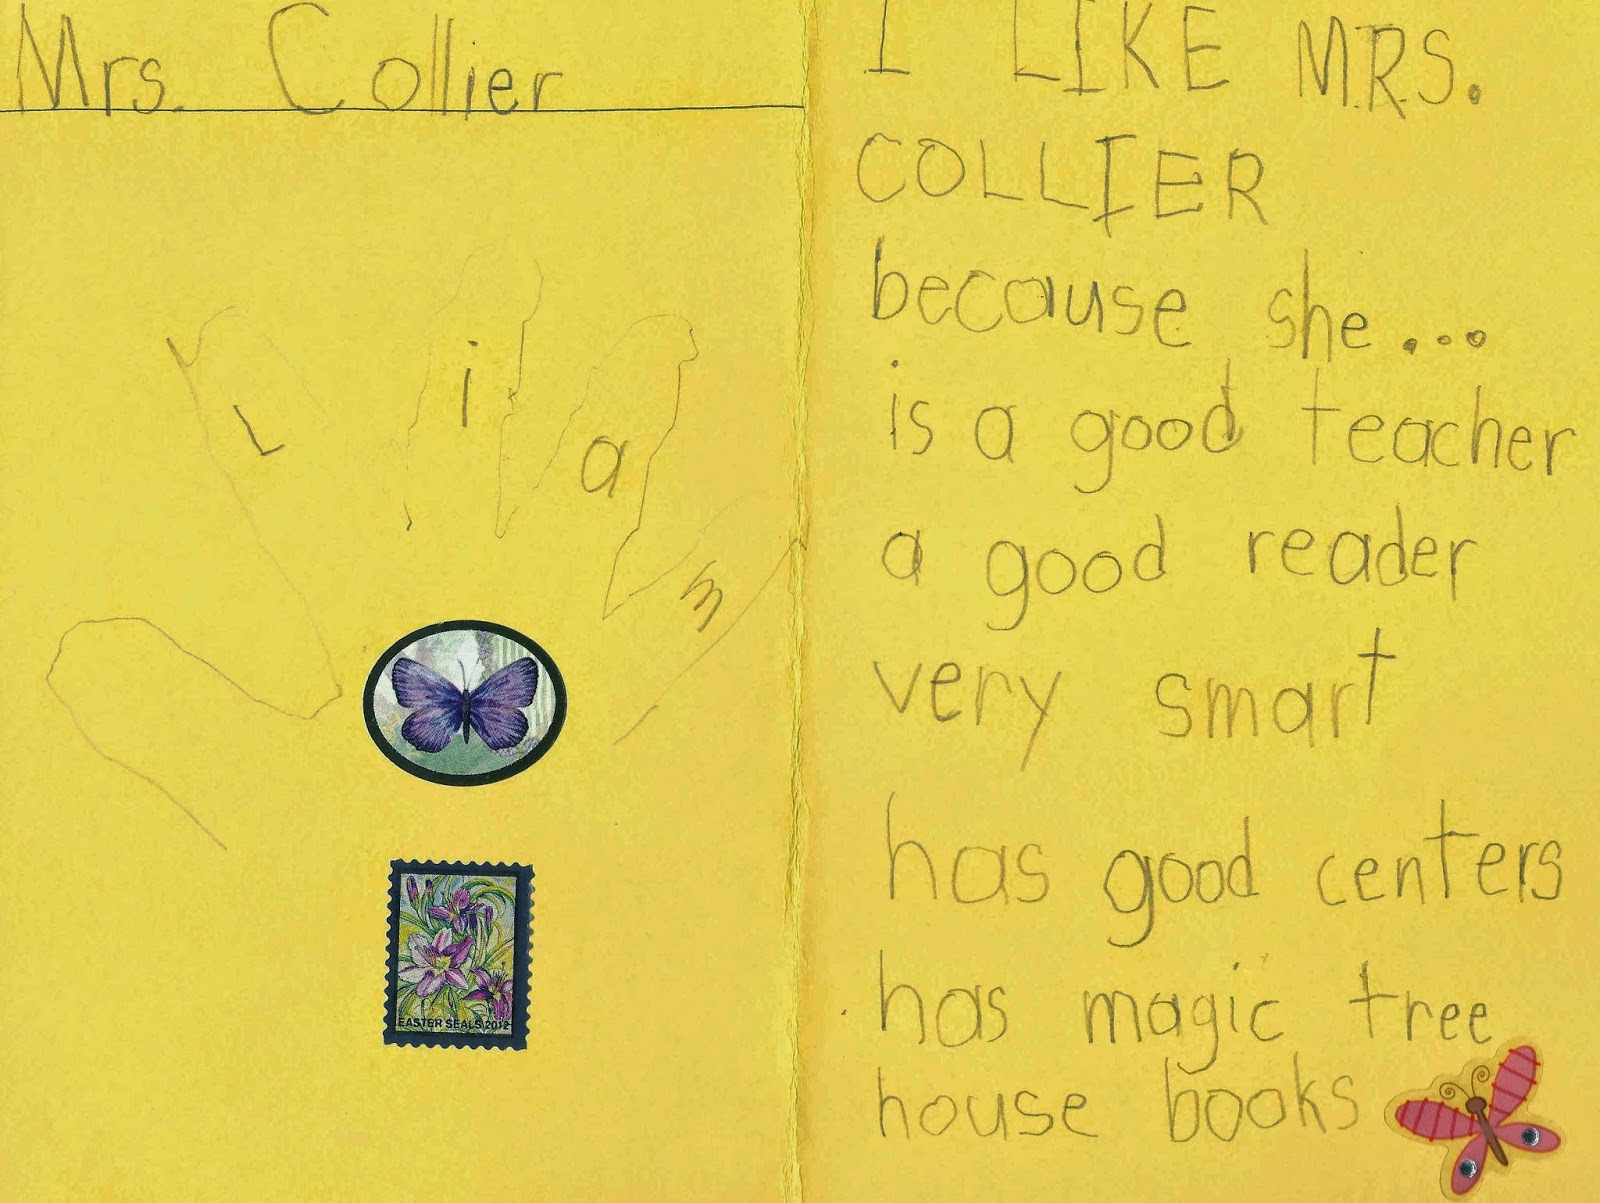 Mrs. Collier
L i a m
EASTER SEALS 2012
I LIKE MRS.
COLLIER
because she...
is a good teacher
a good reader
very smart
has good centers
has magic tree
house books